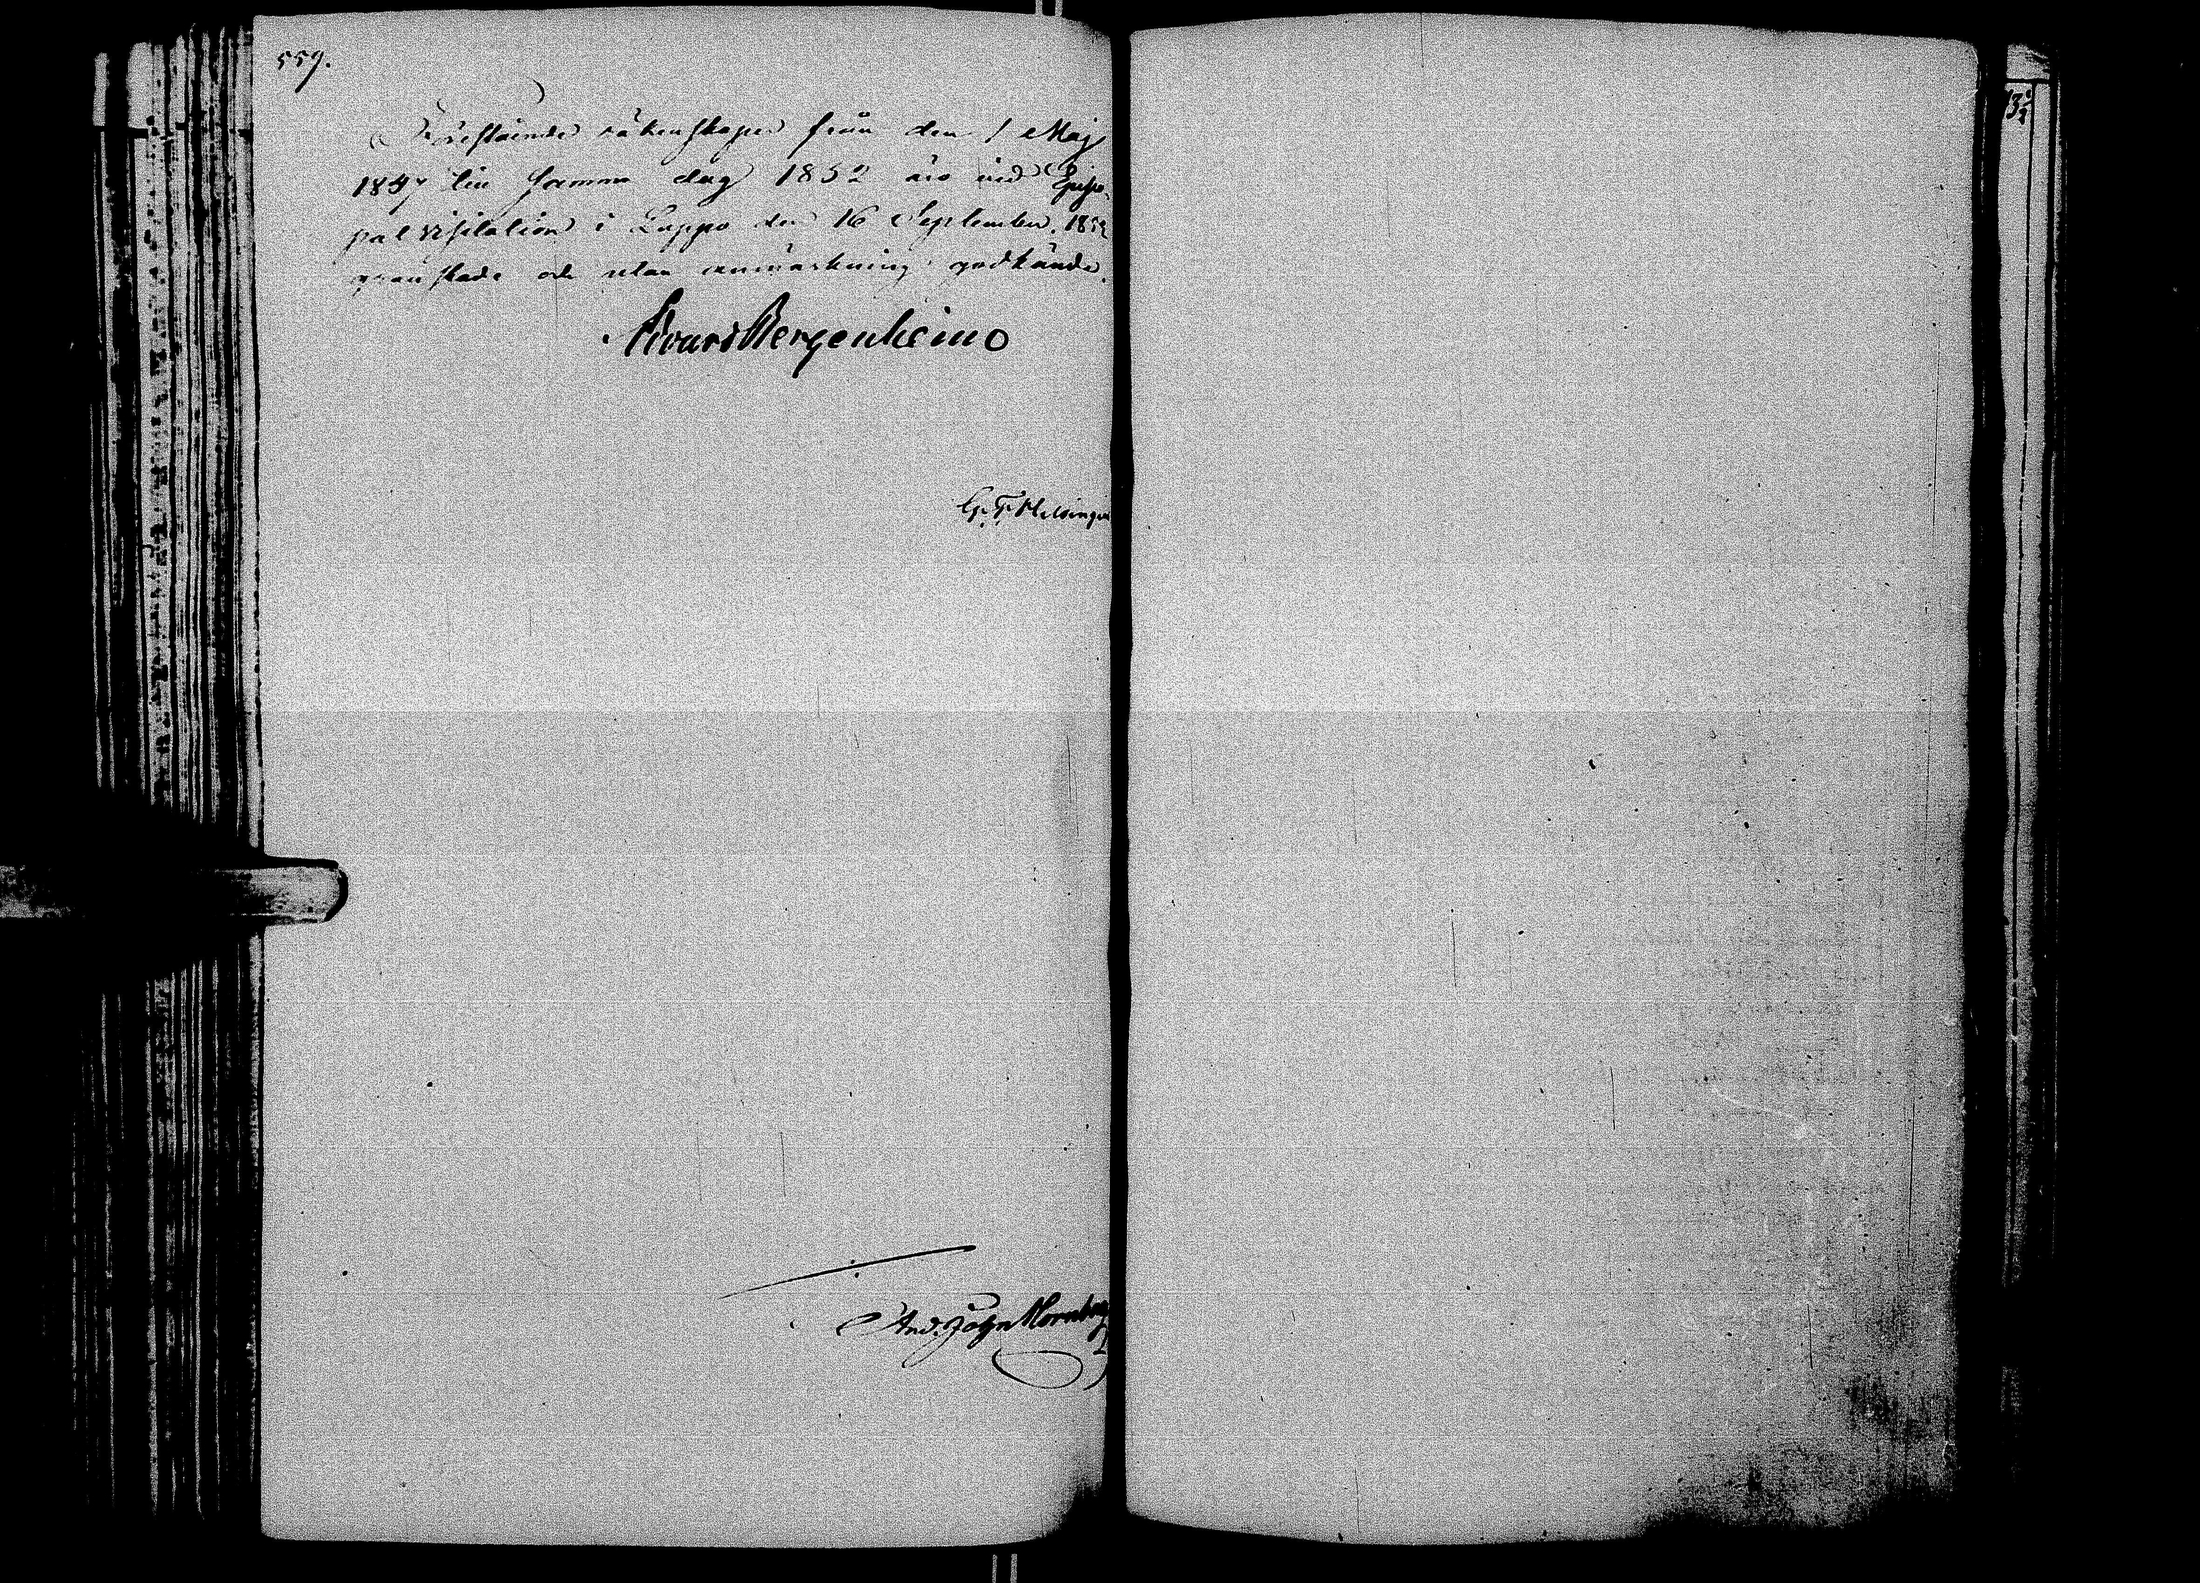 559.
Förestående räkenskaper från den 1 Maji
1847 till samma dag 1852 äro vid Episco-
pal visitation i Lappo den 16 September 1852
granskade och utan anmärkning godkände.
Edvard Bergenheim
G. F. Helsingius
And. Joh:n Hornborg